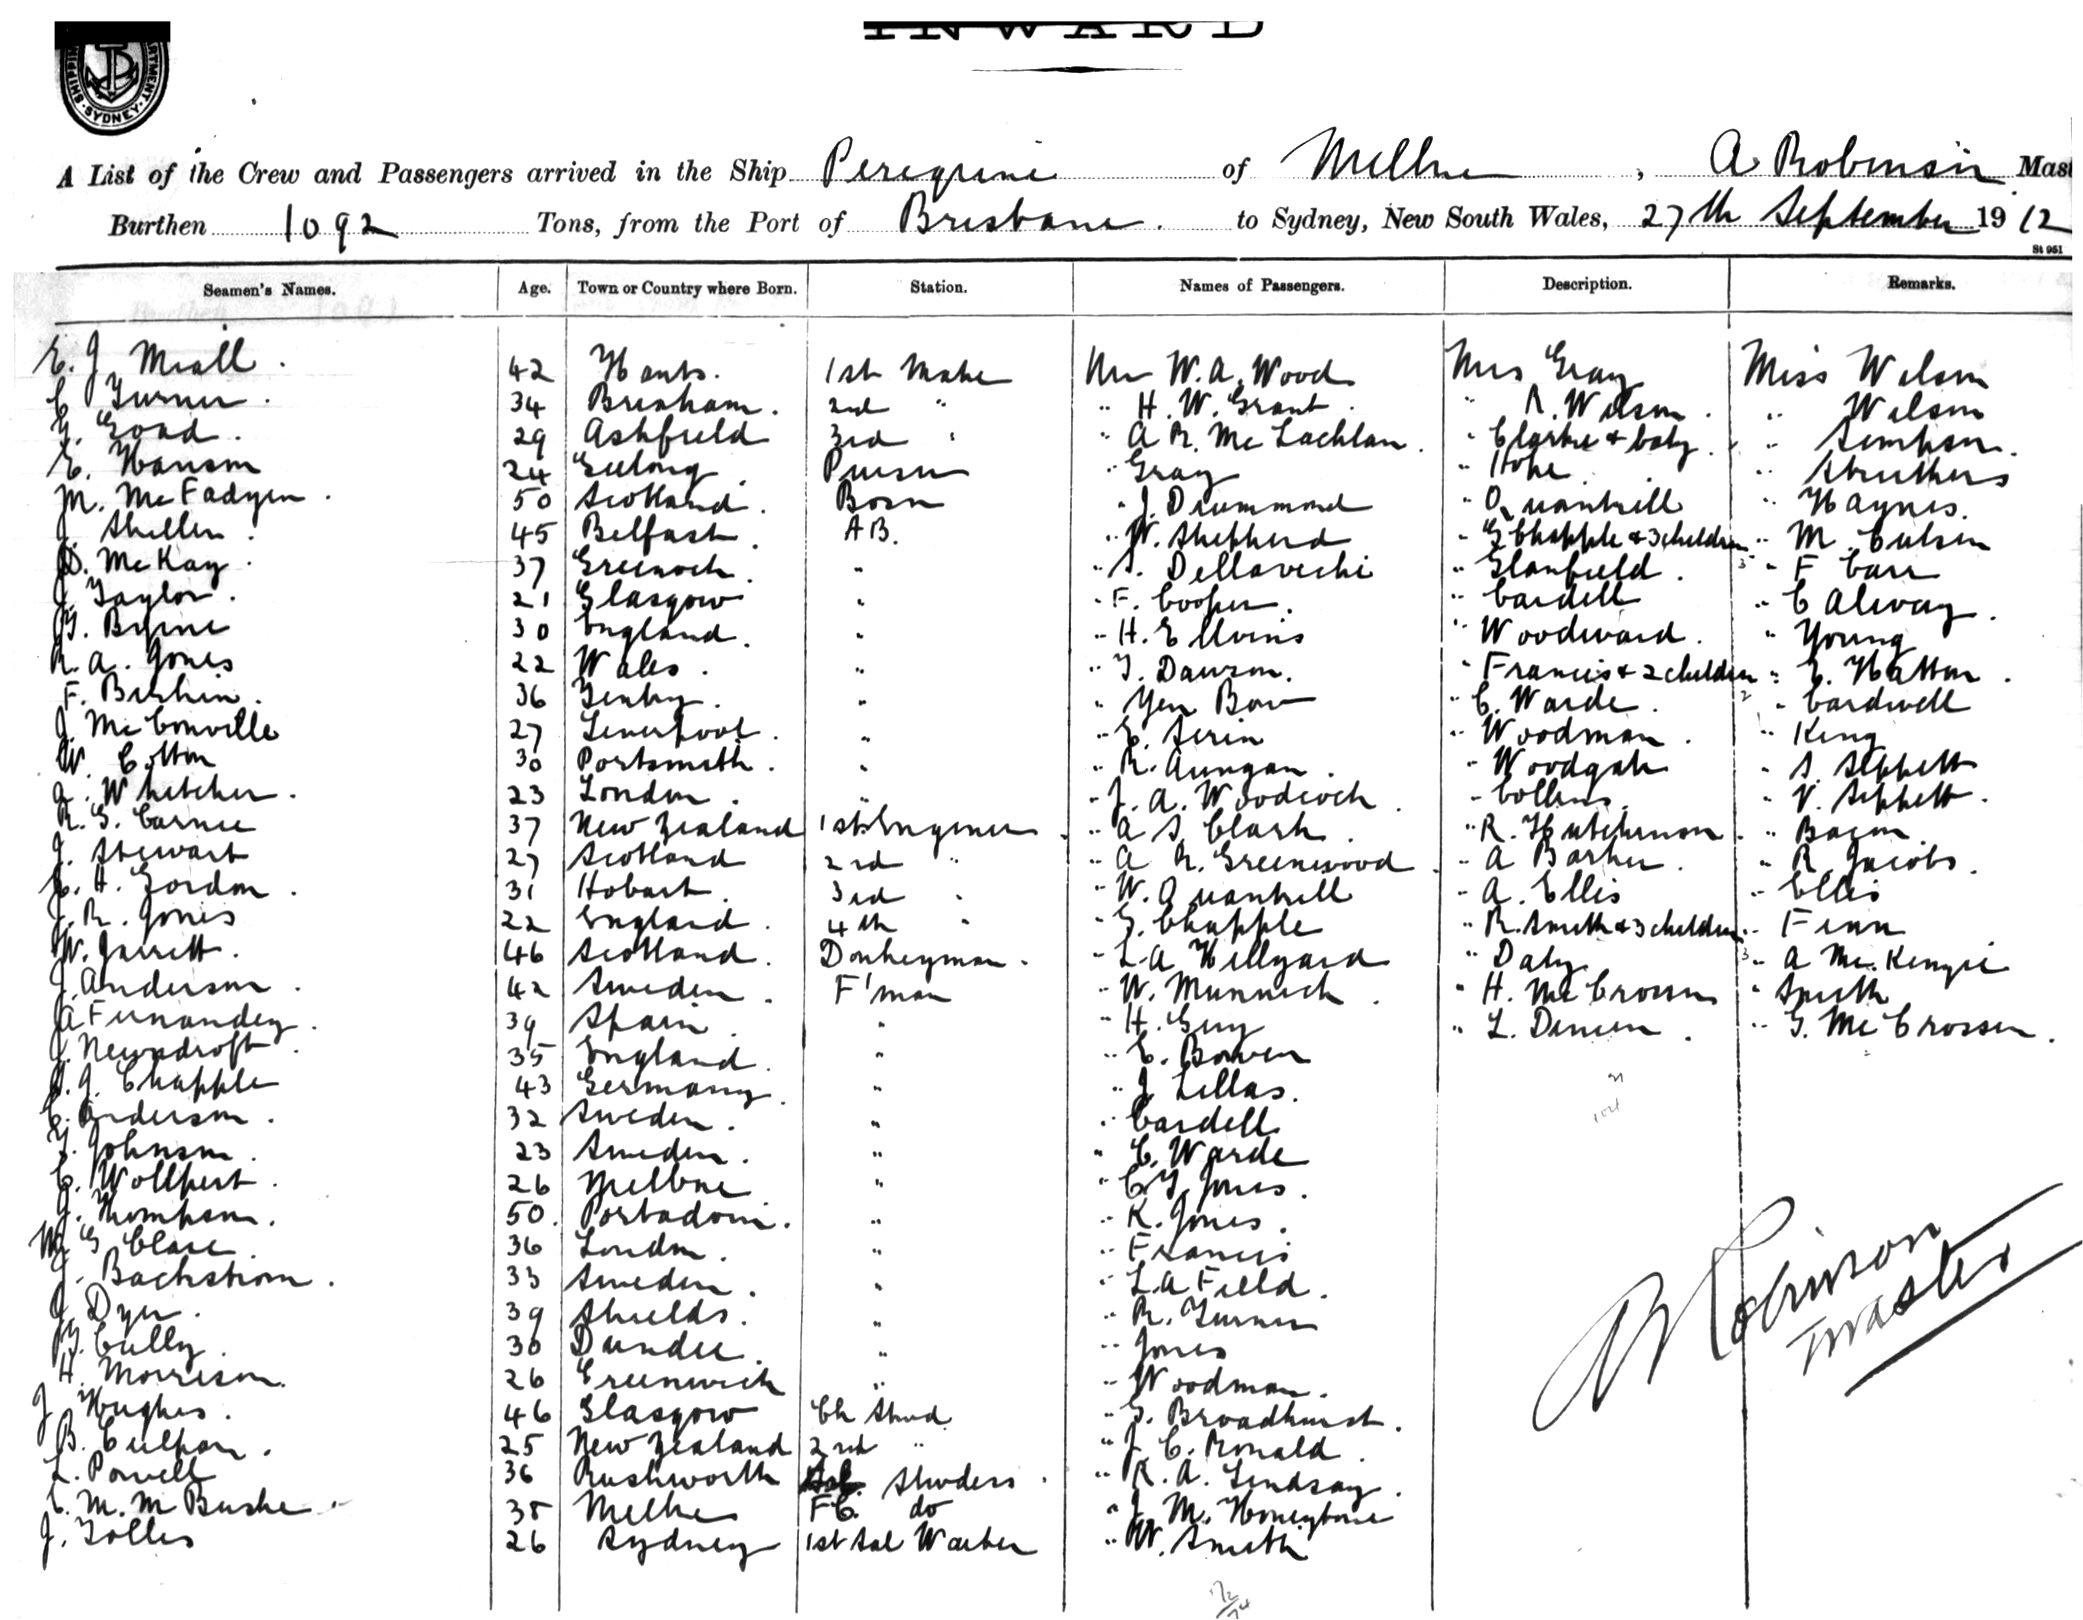 INWARD
SYDNEY
A List of the Crew and Passengers arrived in the Ship Peregrine of Melbne, A Robinson Mast
Burthen 1092 Tons, from the Port of Brisbane. to Sydney, New South Wales, 27th September 1912
St 951
Seamen's Names. Age. Town or Country where Born. Station. Names of Passengers. Description. Remarks.
E. J Miall. 42 Hants. 1st Mate Mr W. A. Wood Mrs Gray Miss Wilson
C Turner. 34 Brixham. 2nd " " H. W. Grant. " R. Wilson. " Wilson
G. Goad. 29 Ashfield 3rd " " A R. McLachlan. " Clarke & baby. " Simpson.
E. Hanson 24 Geelong. Purser " Gray " Hope " Struthers
M. McFadyen. 50 Scotland. Bosn " J. Drummond " Quantrill " Haynes.
J. Shellen. 45 Belfast. A B. " W. Shepherd " G Chapple & 3 children " M. Culsen
D. McKay. 37 Greenock. " " S. Dellavechi " Glanfield. " F Carr
J. Taylor. 21 Glasgow " " F. Cooper. " Cardell " C Alway.
G. Byrne 30 England. " " H. Ellvins " Woodward. " Young
R. A. Jones 22 Wales. " " T. Dawson. " Francis & 2 children " E. Hatton.
F. Bishin. 36 Tenby. " " Yen Bow " C. Warde. " Cardwell
J. McConville 27 Liverpool. " " E. Serin " Woodman. " King
W. Cotton 30 Portsmouth. " " R. Aungan. " Woodgate " S. Sippett
Whitcher. 23 London. " " J. A. Woodcock. " Collins. " V. Sippett.
R. G. Carnie 37 New Zealand 1st Engineer " A S. Clark. " R. Hutchinson. " Bacon.
J. Stewart 27 Scotland 2nd " " A R. Greenwood " A Barker. " R Jacobs.
H. Gordon. 31 Hobart. 3rd " " W. Quantrill " A. Ellis " Ellis
J. R. Jones 22 England. 4th " " G. Chapple " R. Smith & 3 children " Finn
W. Jarrett. 46 Scotland. Donkeyman. " L. A Hillyard " Daly " A McKenzie
J. Anderson. 42 Sweden. F'man " W. Munnich. " H. McCrossen " Smith
A Fernandez. 39 Spain. " " H. Guy " L. Dineen. " G. McCrossen.
J. Newdroft. 35 England. " " E. Bowen
J. Chapple 43 Germany. " " J Lillas.
C. Anderson. 32 Sweden. " " Cardell
Johnson. 23 Sweden. " " C. Warde
C. Wollpert. 26 Melbne " " C. T. Jones.
J. Thompson. 50. Portadown. " " K. Jones.
G Clare. 36 London. " " Francis
J. Backstrom. 33 Sweden. " " L. A Field.
J. Dyer. 39 Shields. " " R. Turner
Cully. 30 Dundee. " " Jones
H. Morrison. 26 Greenwich " " Woodman.
J Hughes. 46 Glasgow Ch Stwd " G. Broadhurst.
B. Culpan. 25 New Zealand 2nd " " J C. Ronald.
L. Powell 36 Rushworth Stwdess. " R. A. Lindsay.
C. M. M Bushe 38 Melbne F C. do " J M. Honeybone
J. Tolles 26 Sydney 1st Sal Waiter " W. Smith
A Robinson
Master